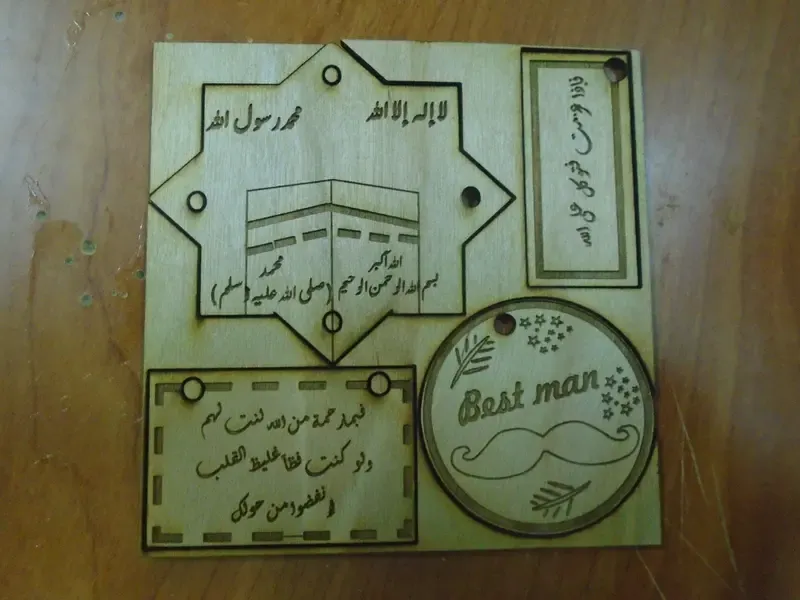 لا إله إلا الله
محمد رسول الله
الله أكبر
بسم الله الرحمن الرحيم
محمد
(صلى الله عليه وسلم)
فإذا عزمت فتوكل على الله
فبما رحمة من الله لنت لهم
ولو كنت فظاً غليظ القلب
لا نفضوا من حولك
Best man